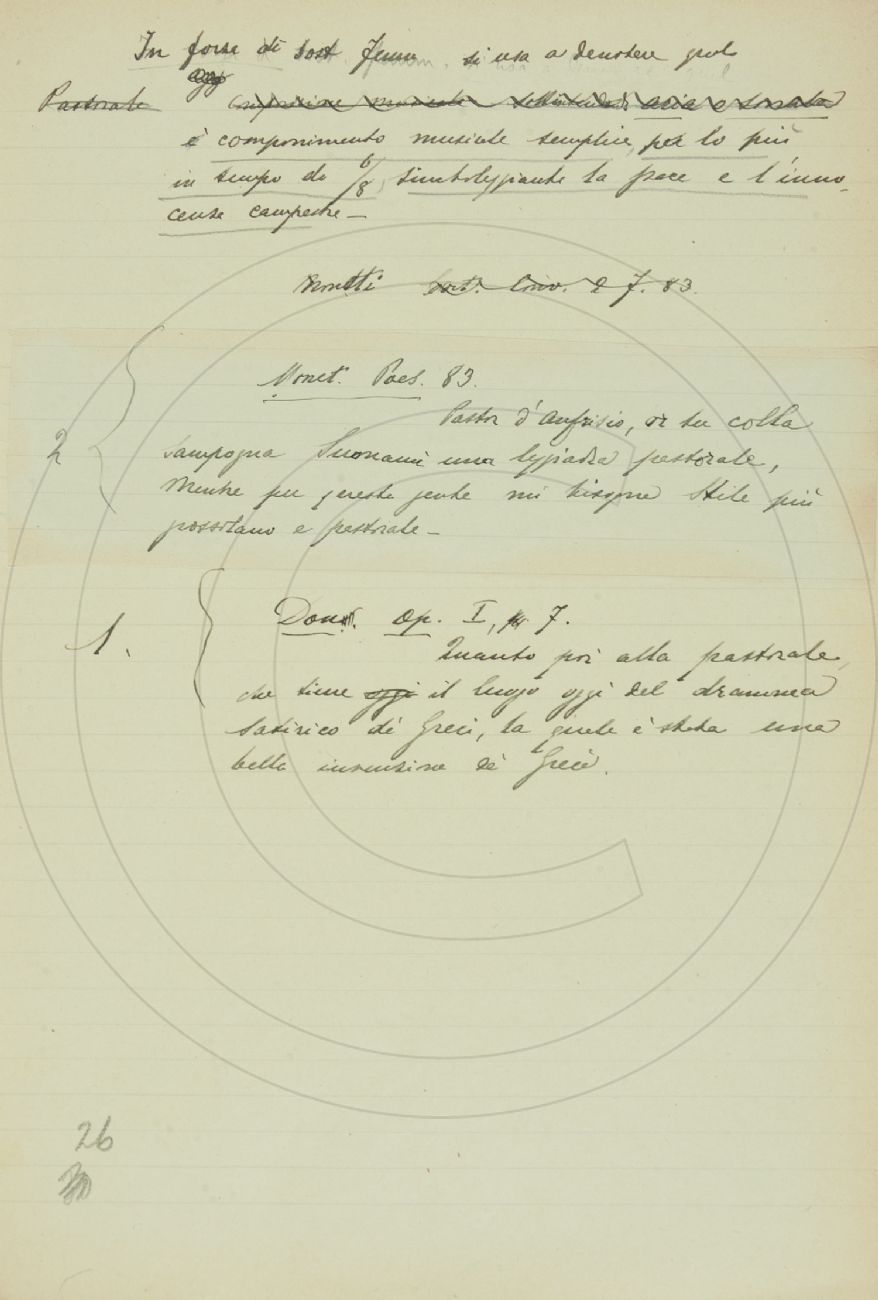 In forza di Sost. Femm. si usa a denotare quel
Pastorale composizione musicale aria o sonata
è componimento musicale semplice, per lo più
in tempo da 6/8, simboleggiante la pace e l'inno-
cenza campestre —
Monetti Conv. 2 7. 83.
Monet. Poes. 83.
2 Pastor d'Anfrisio, or tu colla
sampogna Suonami una leggiadra pastorale,
Mentre per questa gente mi bisogna Stile più
possolano e pastorale —
1. Op. I, 7.
Quanto poi alla pastorale,
che tiene oggi il luogo oggi del dramma
Satirico de' Greci, la quale è stata una
bella invenzione de' Greci.
26